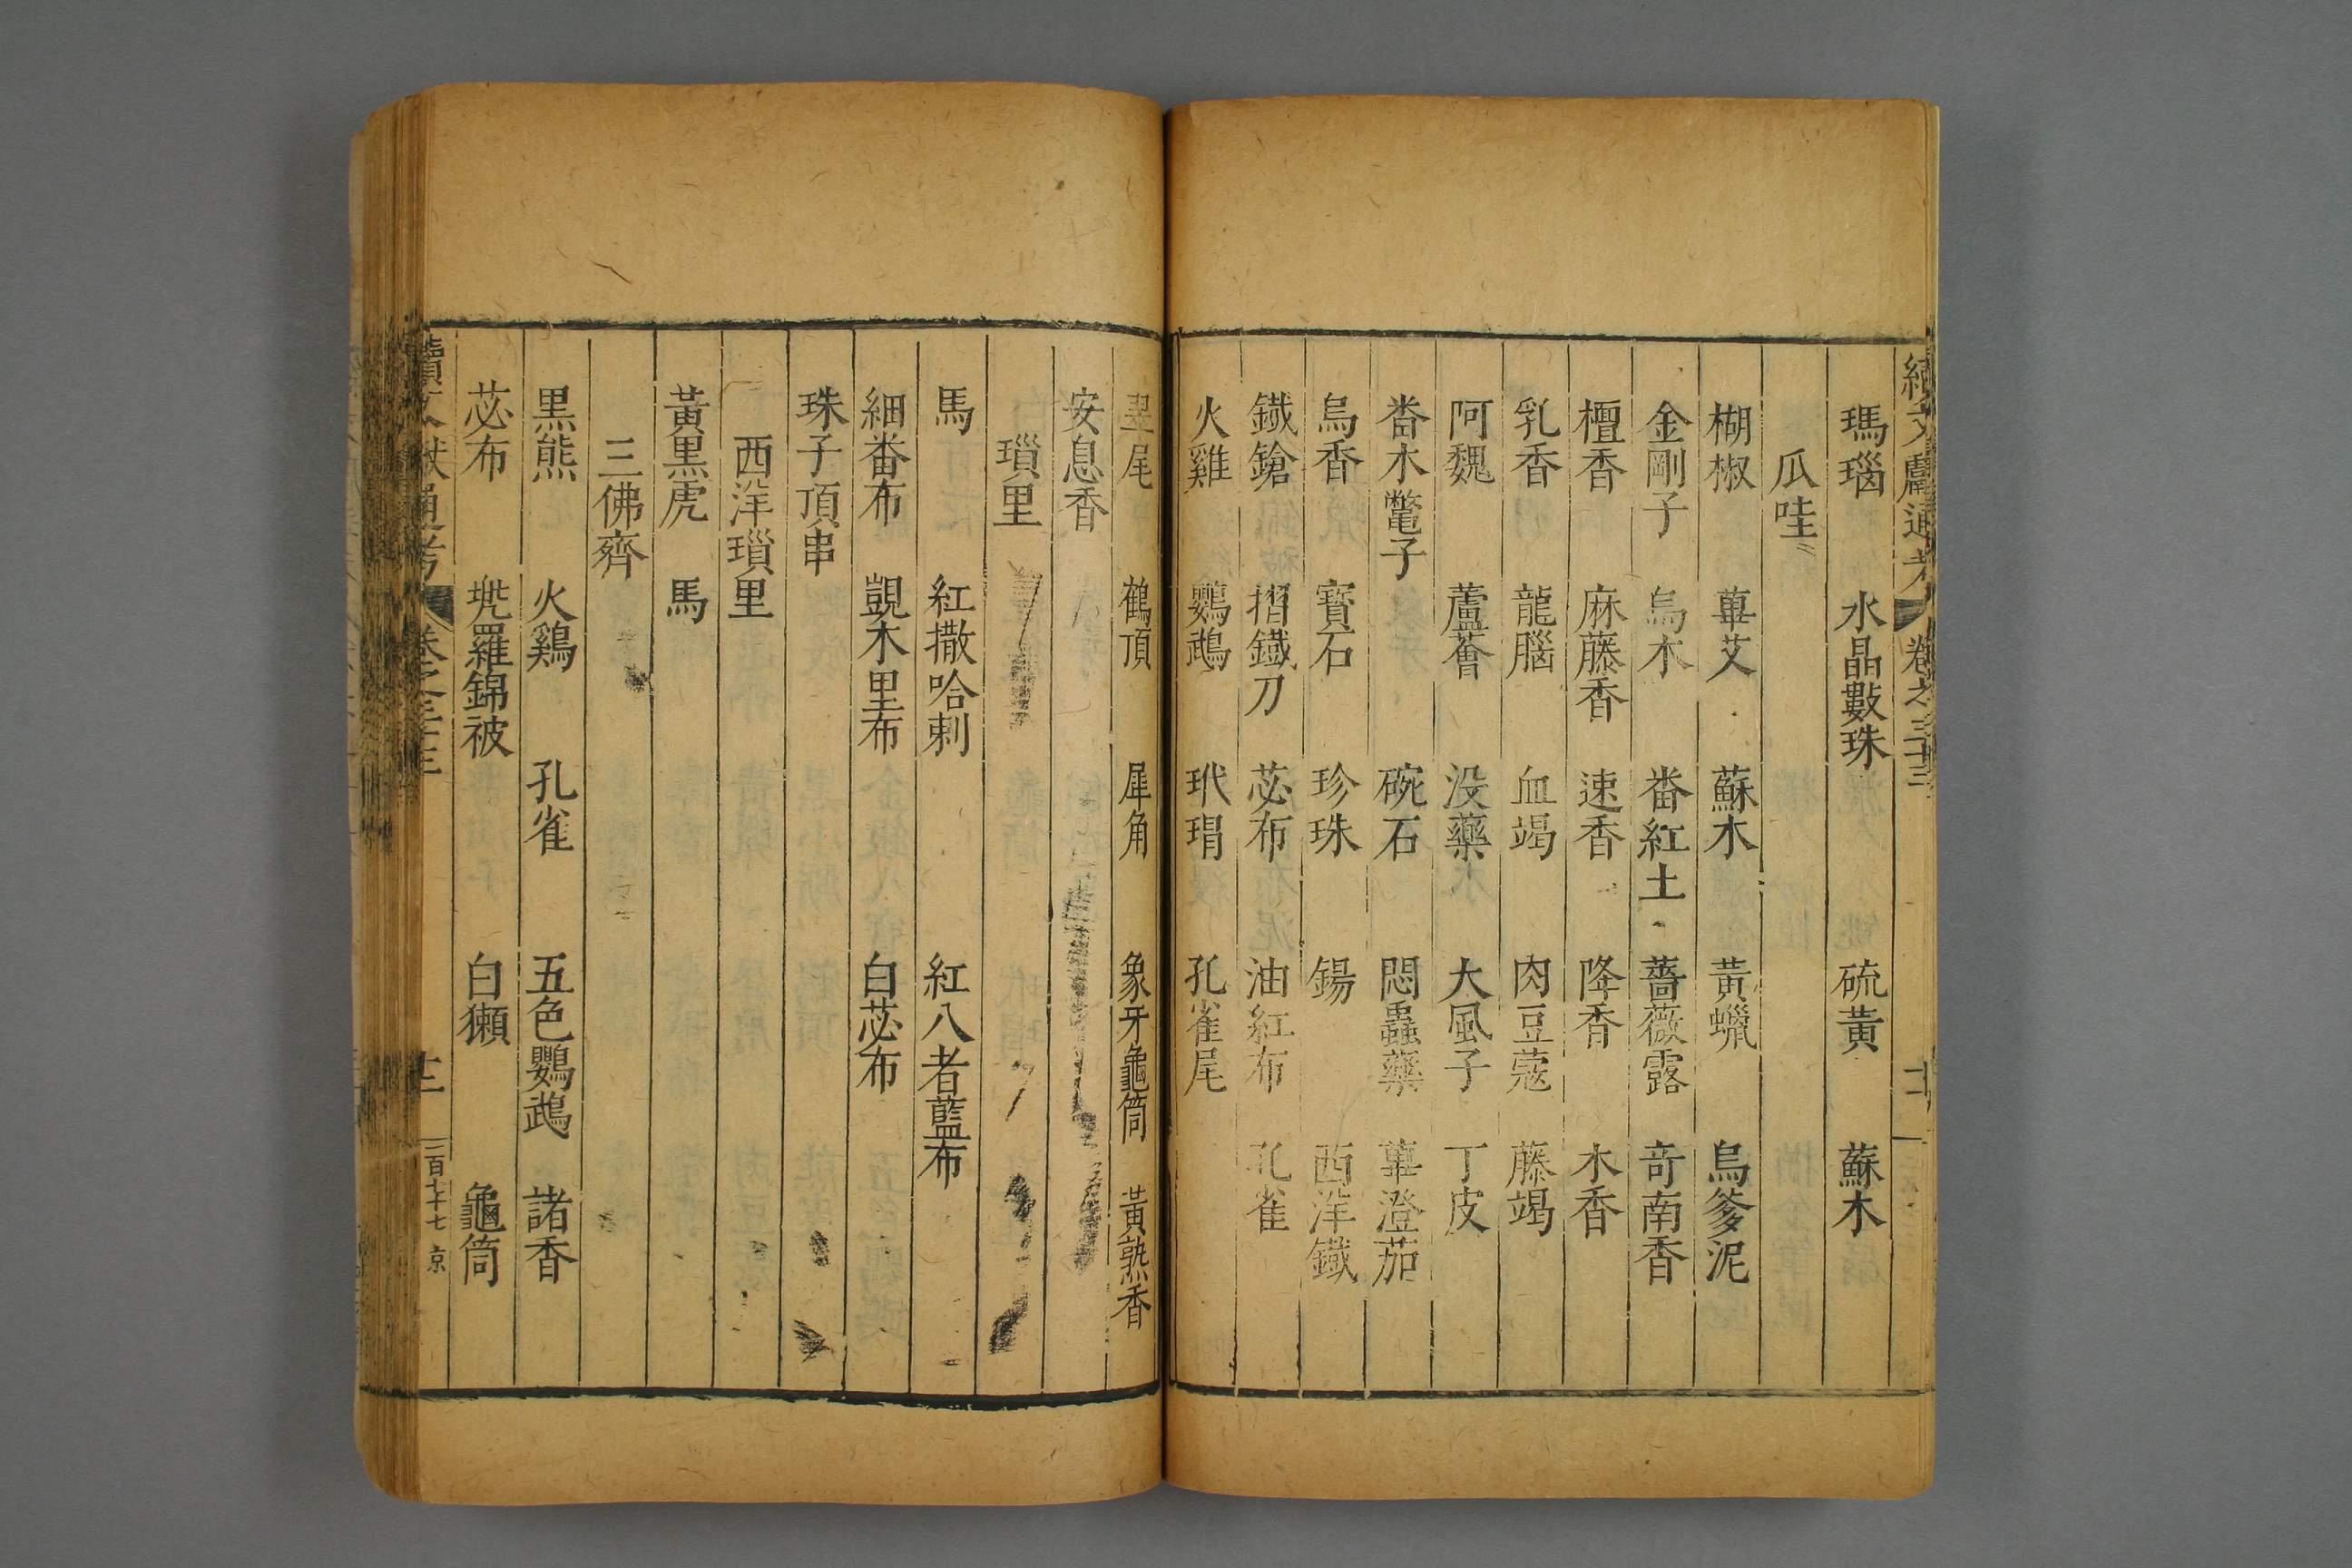 續文獻通考 卷之三十三
瑪瑙 水晶數珠 硫黃 蘇木
瓜哇
楜椒 蓽茇 蘇木 黃蠟 烏爹泥
金剛子 烏木 番紅土 薔薇露 奇南香
檀香 麻藤香 速香 降香 木香
乳香 龍腦 血竭 肉豆蔻 藤竭
阿魏 蘆薈 没藥 大風子 丁皮
番木鼈子 碗石 悶蟲藥 蓽澄茄
烏香 寶石 珍珠 鍚 西洋鐵
鐵鎗 摺鐵刀 苾布 油紅布 孔雀
火雞 鸚鵡 玳瑁 孔雀尾
翠尾 鶴頂 犀角 象牙 龜筒 黃熟香
安息香
瑣里
馬 紅撒哈剌 紅八者藍布
細番布 覬木里布 白苾布
珠子頂串
西洋瑣里
黃黑虎 馬
三佛齊
黑熊 火鷄 孔雀 五色鸚鵡 諸香
苾布 兠羅錦被 白獺 龜筒
續文獻通考 卷之三十三 十二 京